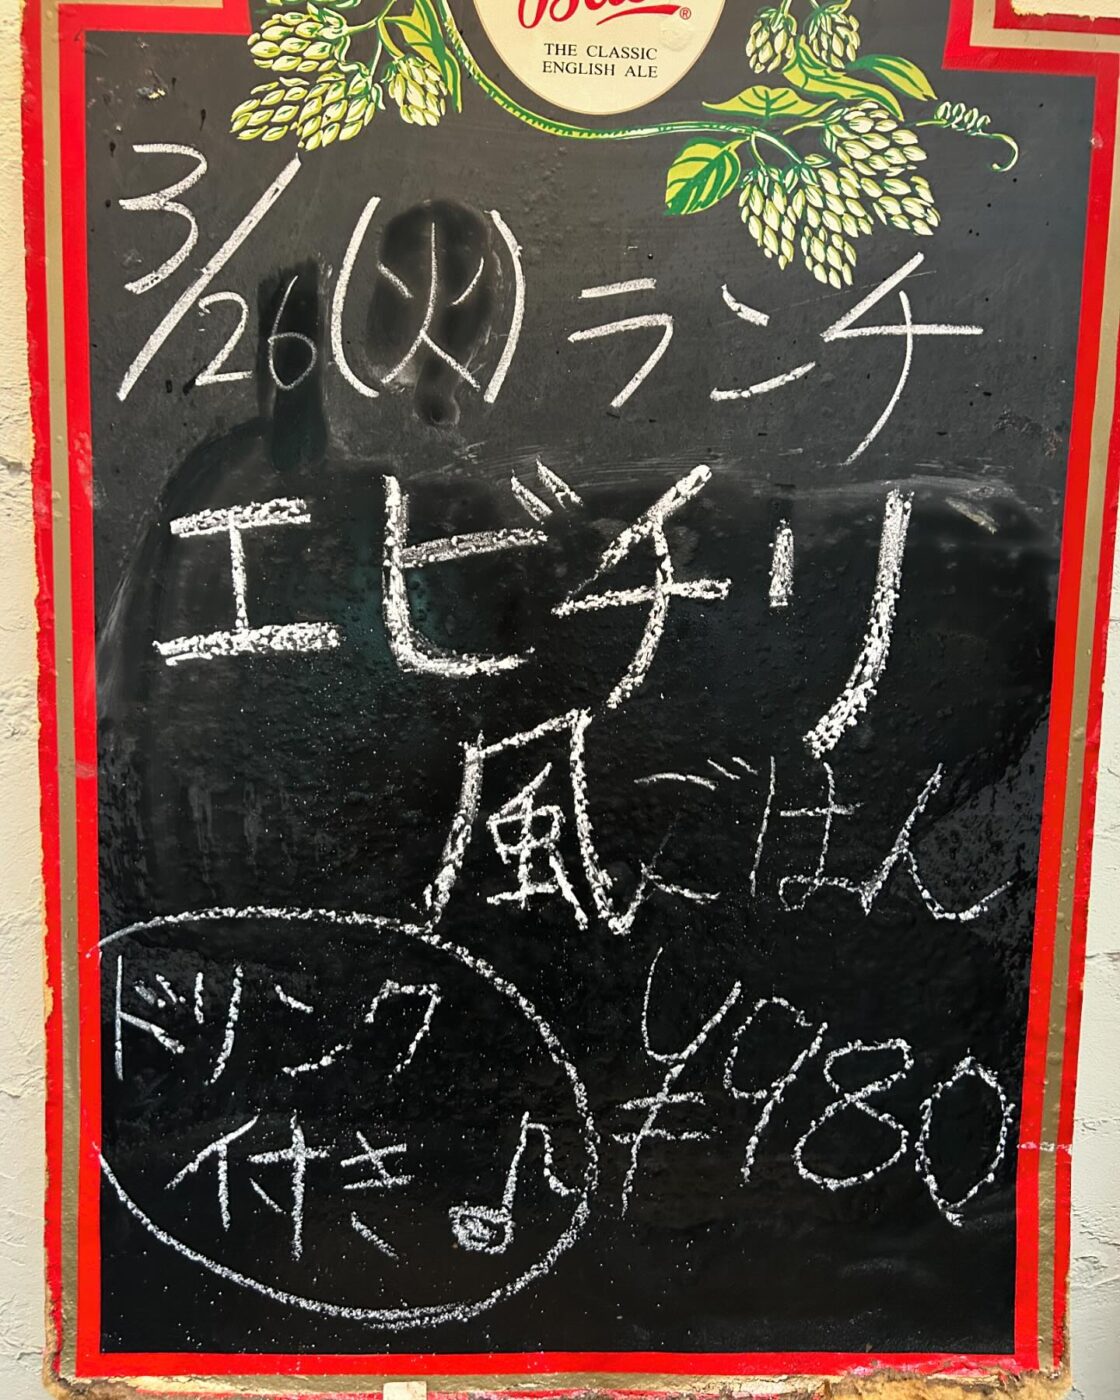 THE CLASSIC
ENGLISH ALE
3/26(火)ランチ
エビチリ
風ごはん
ドリンク
付き♪
¥980